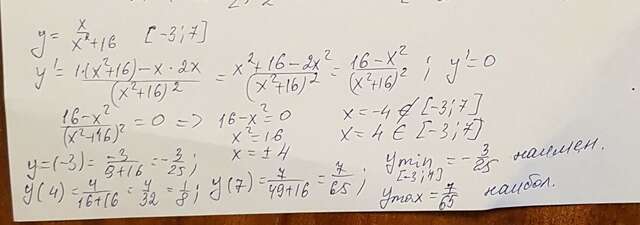 y = x/(x²+16) [-3; 7]
y' = (1·(x²+16) - x·2x)/(x²+16)² = (x²+16-2x²)/(x²+16)² = (16-x²)/(x²+16)² ; y' = 0
(16-x²)/(x²+16)² = 0 => 16-x² = 0 x = -4 ∉ [-3; 7]
x² = 16 x = 4 ∈ [-3; 7]
x = ± 4
y=(-3) = -3/(9+16) = -3/25 ; ymin [-3;7] = -3/25 наимен.
y(4) = 4/(16+16) = 4/32 = 1/8 ; y(7) = 7/(49+16) = 7/65 ; ymax = 7/65 наибол.